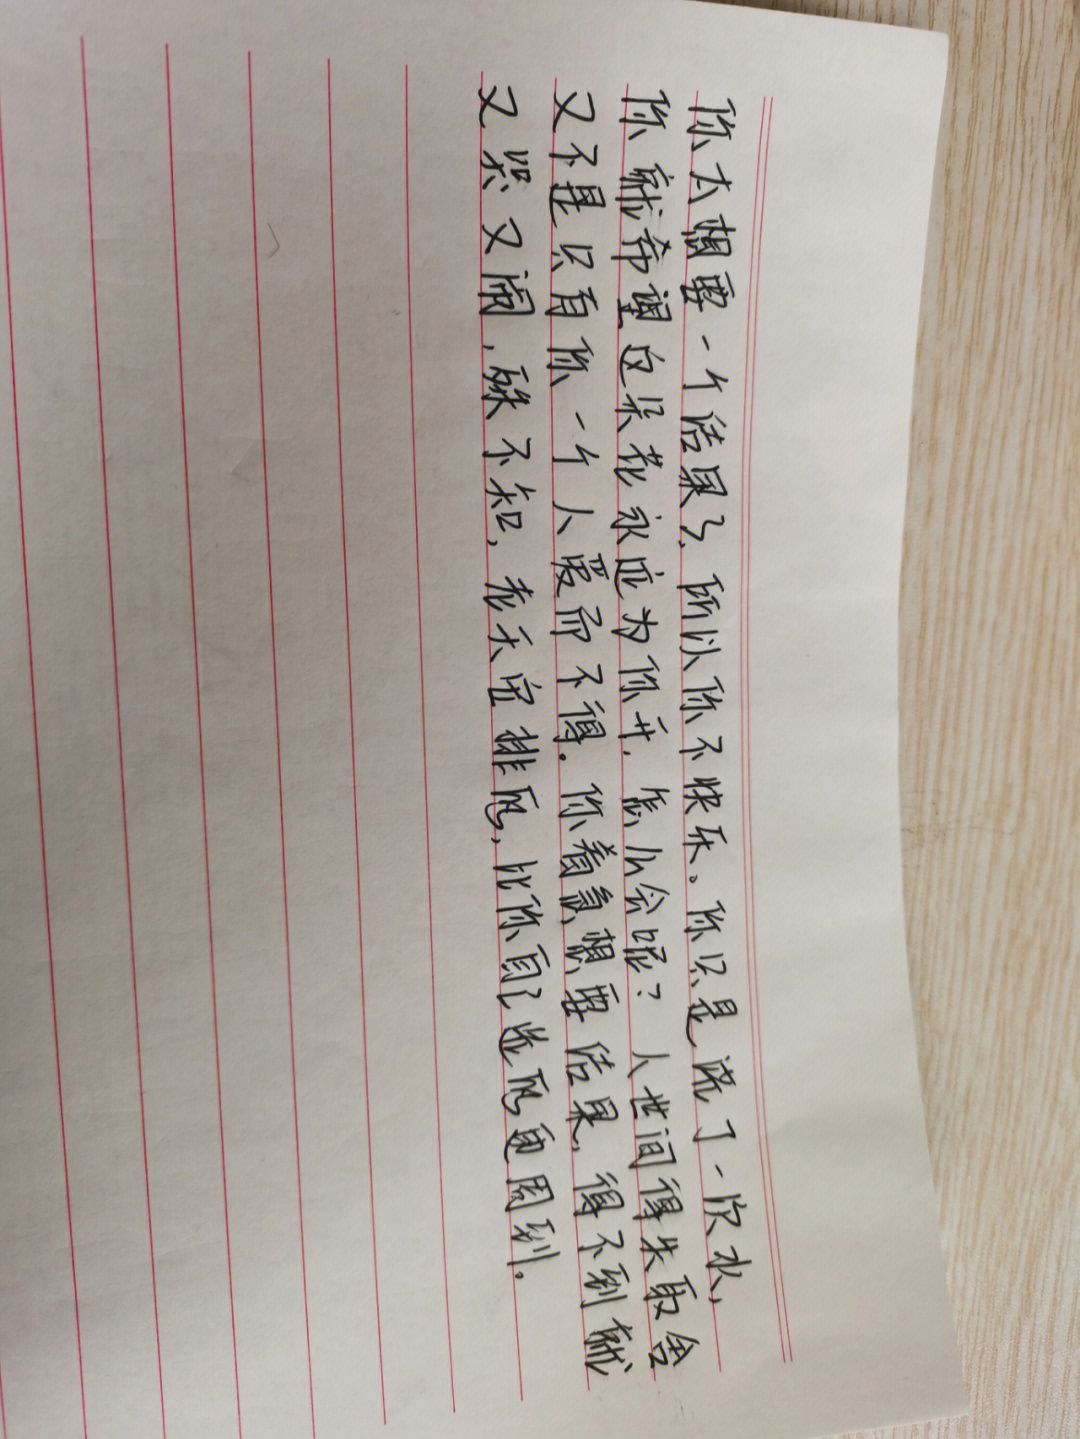 你太想要一个结果了,所以你不快乐。你只是浇了一次水,
你就希望这朵花永远为你开,怎么会呢?人世间得失取舍
又不是只有你一个人爱而不得.你着急想要结果,得不到就
又哭又闹,殊不知,老天安排的,比你自己选的更周到.